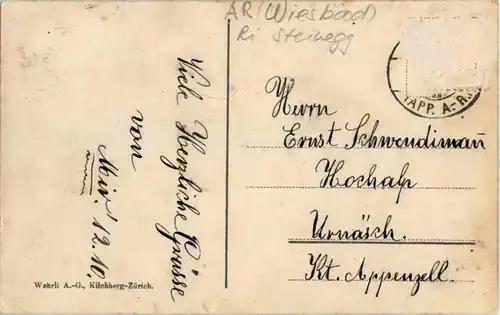 AR (Wiesbad)
Ri Steinegg
(APP. A.-R.)
Viele Herzliche Grüsse
von
Mir. 12.10.
Herrn
Ernst Schwendimañ
Hochalp
Urnäsch.
Kt. Appenzell.
Wehrli A.-G., Kilchberg-Zürich.